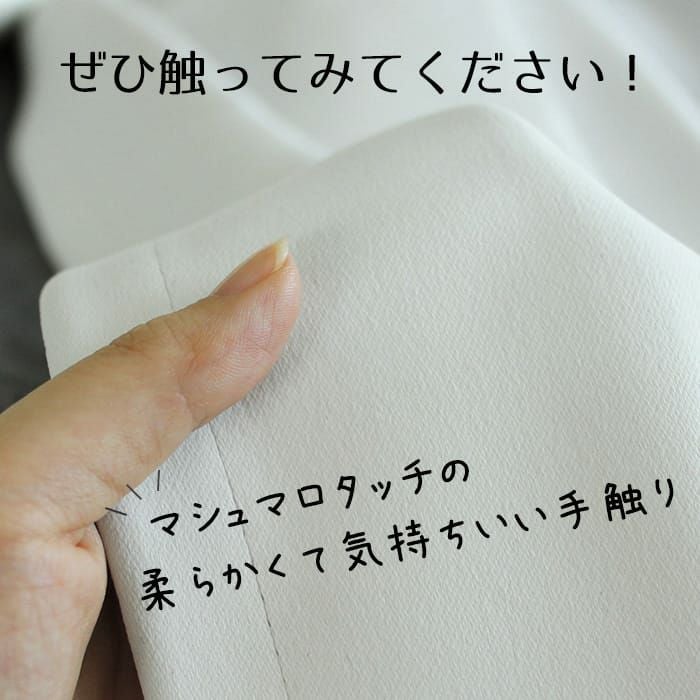 ぜひ触ってみてください！
マシュマロタッチの
柔らかくて気持ちいい手触り